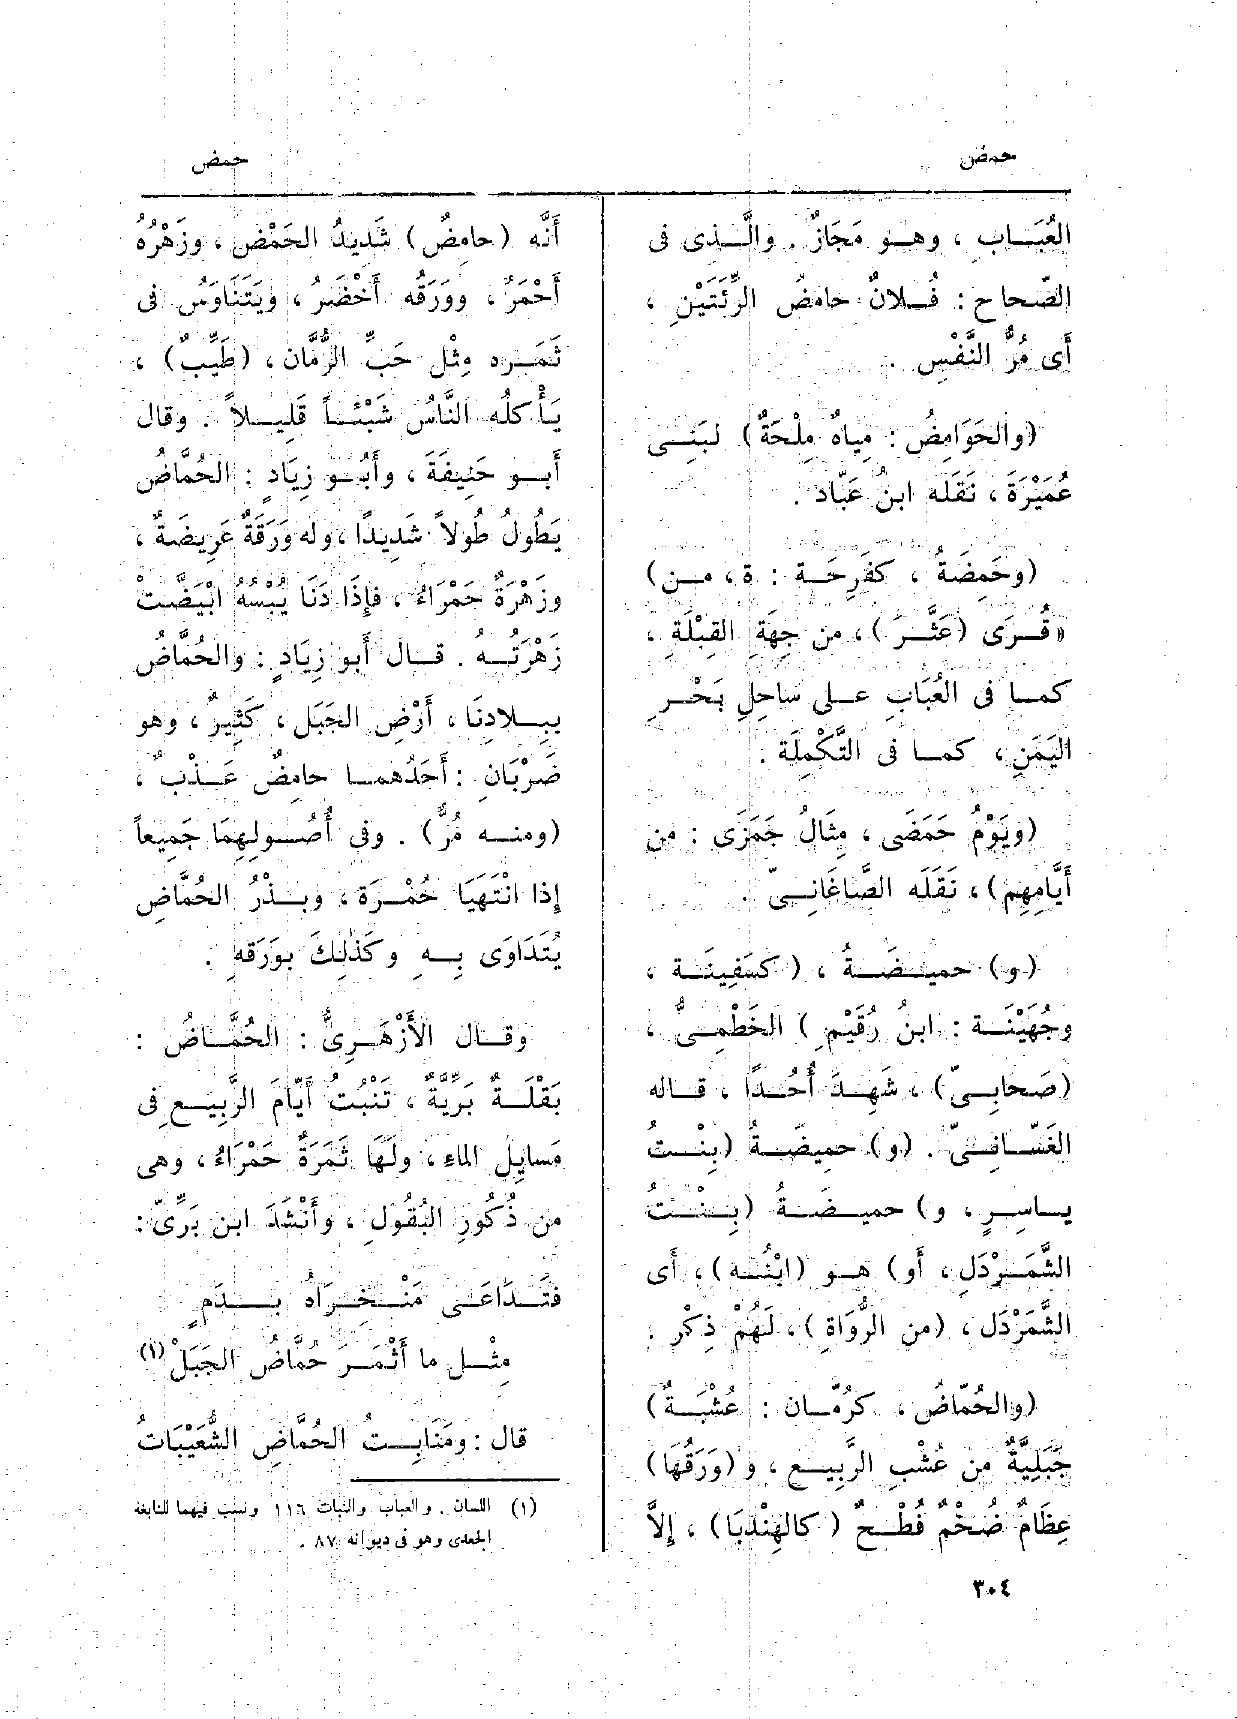 حمض
حمض
العُبَــاب ، وهــو مَجَازٌ . والَّــذِى فى
الصّحاح : فُــلانٌ حامضُ الرِّئَتَيْنِ ،
أَى مُرُّ النَّفْسِ .
(والحَوَامِضُ : مِياهٌ مِلْحَةٌ) لبَنِــى
عُمَيْرَةَ ، نَقَلَه ابنُ عَبّاد .
(وحَمِضَةُ ، كفَرِحَــة : ة ، مــن)
قُــرَى (عَثَّــرَ) ، من جِهَةِ القِبْلَةِ ،
كمــا فى العُبَابِ عــلى ساحِلِ بَحْــرِ
اليَمَنِ ، كمــا فى التَّكْمِلَة .
(ويَوْمُ حَمَضَى ، مِثَالُ جَمَزَى : من
أَيّامِهِم) ، نَقَلَه الصّاغَانِــىّ .
(و) حميــضَــةُ ، (كسَفِينَــة ،
وجُهَيْنَــة : ابنُ رُقَيْمٍ ) الخَطْمِــىُّ ،
(صَحابِــىّ) ، شَهِــدَ أُحُــدًا ، قــاله
الغَسّــانِــىّ . (و) حميضَــةُ (بِنْــتُ
يــاسِــرٍ ، و) حميــضَــةُ (بِــنْــتُ
الشَّمَــرْدَلِ ، أَو) هــو (ابْنُــه) ، أَى
الشَّمَرْدَل ، (من الرُّوَاةِ) ، لَهُمْ ذِكْر .
(والحُمّاضُ ، كرُمّــان : عُشْبَــةٌ)
جَبَلِيَّةٌ من عُشْبِ الرَّبِيــع ، و (وَرَقُهَا)
عِظَامٌ ضُخْمٌ فُطْــحٌ ( كالهِنْدَبَا) ، إِلاَّ
أَنَّه (حامِضٌ) شَدِيدُ الحَمْض ، وزَهْرُهُ
أَحْمَرُ ، ووَرَقُه أَخْضَرُ ، ويَتَنَاوَسُ فى
ثَمَــرِه مِثْل حَبِّ الرُّمَّان ، (طَيِّبٌ) ،
يَــأْكلُه النَّاسُ شَيْئــاً قَلِيــلاً . وقال
أَبــو حَنِيفَةَ ، وأَبُــو زِيَادٍ : الحُمَّاضُ
يَطُولُ طُولاً شَدِيدًا ، وله وَرَقَةٌ عَرِيضَةٌ ،
وزَهْرَةٌ حَمْرَاءُ ، فإِذَا دَنَا يُبْسُهُ ابْيَضَّتْ
زَهْرَتُــهُ . قــال أَبو زِيَادٍ : والحُمَّاضُ
بِبِــلادِنَا ، أَرْضِ الجَبَل ، كَثِيرٌ ، وهو
ضَرْبَان : أَحَدُهمــا حامِضٌ عَــذْبٌ ،
(ومنــه مُرٌّ) . وفى أُصُــولِهِمَا جَميعاً
إِذا انْتَهَيَا حُمْــرَة ، وبــذْرُ الحُمَّاضِ
يُتَدَاوَى بِــهِ وكَذٰلِكَ بوَرَقهِ .
وقــال الأَزْهَــرِىُّ : الحُمَّــاضُ :
بَقْلَــةٌ بَرِّيَّةٌ ، تَنْبُتُ أَيّامَ الرَّبِيــع فِى
مَسايِلِ الماءِ ، ولَهَا ثَمَرَةٌ حَمْرَاءُ ، وهى
من ذُكُورِ البُقُولِ ، وأَنْشَدَ ابن بَرِّىّ :
فتَــدَاعَــى مَنْــخِــرَاهُ بِــدَمٍ
مِثْــل ما أَثْمَــرَ حُمَّاضُ الجَبَلْ (١)
قال : ومَنَابِــتُ الحُمَّاضِ الشُّعَيْبَاتُ
(١) اللسان . والعباب والنبات ١١٦ ونسب فيهما للنابغة
الجعدى وهو فى ديوانه ٨٧ .
٣٠٤